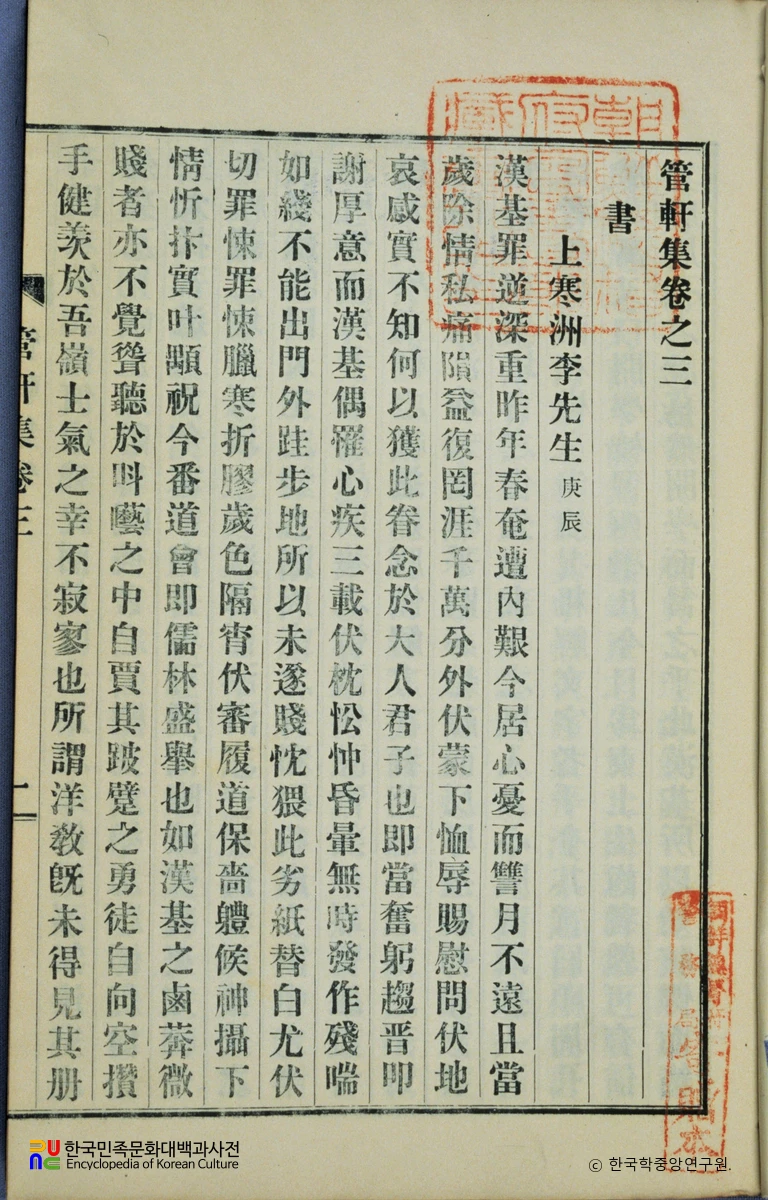 管軒集卷之三
書
上寒洲李先生 庚辰
漢基罪逆深重昨年春奄遭內艱今居心憂而讐月不遠且當
歲除情私痛隕益復罔涯千萬分外伏蒙下恤辱賜慰問伏地
哀感實不知何以獲此眷念於大人君子也即當奮躬趨晋叩
謝厚意而漢基偶罹心疾三載伏枕忪忡昏暈無時發作殘喘
如綫不能出門外跬步地所以未遂賤忱猥此劣紙替白尤伏
切罪悚罪悚臘寒折膠歲色隔宵伏審履道保嗇軆候神攝下
情忻抃實叶顒祝今番道會即儒林盛擧也如漢基之鹵莽微
賤者亦不覺聳聽於呌囈之中自賈其跛躄之勇徒自向空攢
手健羨於吾嶺士氣之幸不寂寥也所謂洋敎旣未得見其册
管軒集卷三
一
한국민족문화대백과사전
Encyclopedia of Korean Culture
© 한국학중앙연구원.